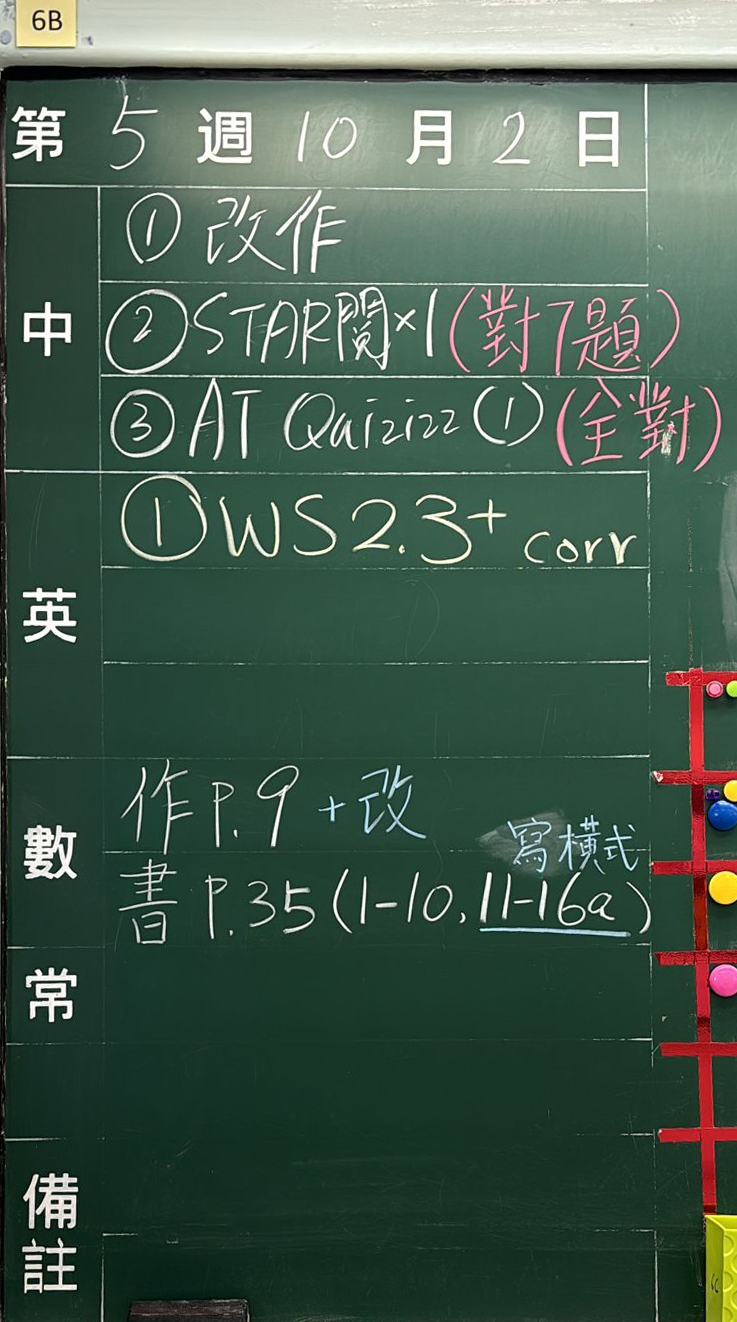 6B
第 5 週 10 月 2 日
中
① 改作
② STAR閱×1 (對7題)
③ AT Quizizz (1) (全對)
英
① WS 2.3 + corr
數
作 P.9 + 改
寫橫式
書 P.35 (1-10, 11-16a)
常
備註